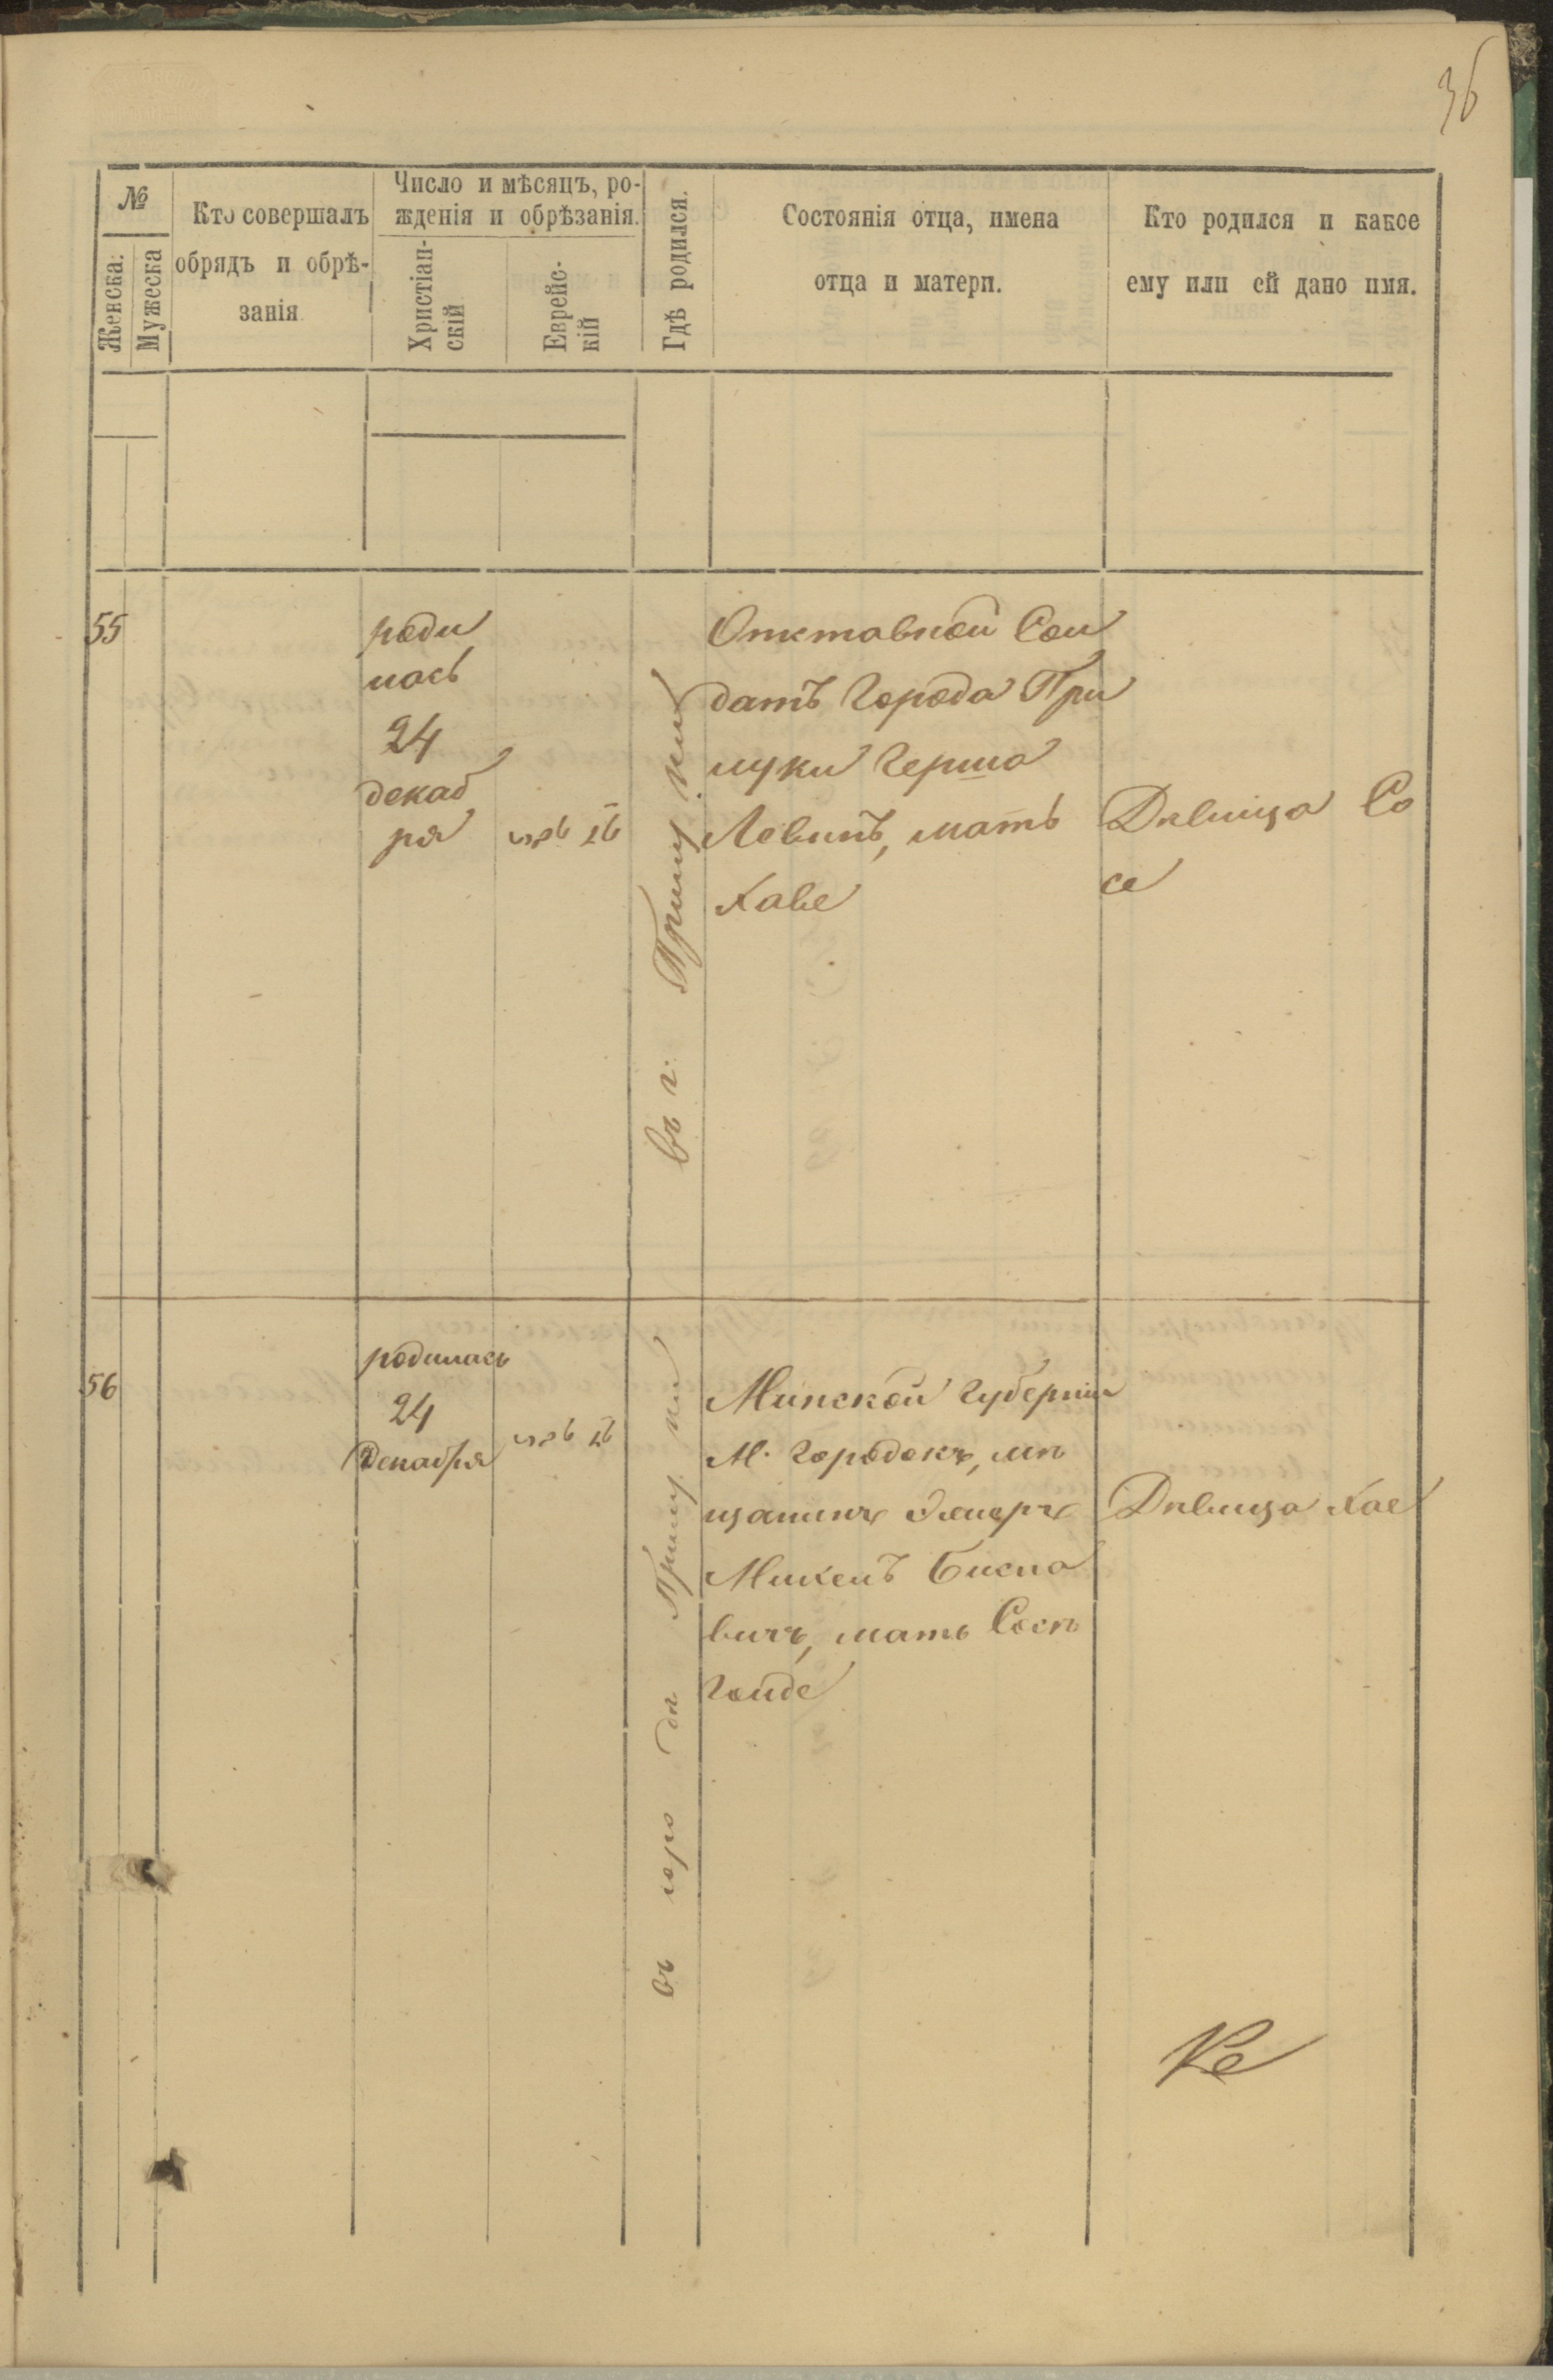 36
№
Женска.
Мужеска
Кто совершалъ
обрядъ и обрѣ-
занія
Число и мѣсяцъ, ро-
жденія и обрѣзанія.
Христіан-
скій
Еврейс-
кій
Гдѣ родился.
Состоянія отца, имена
отца и матери.
Кто родился и какое
ему или ей дано имя.
55
роди
лась
24
декаб
ря
въ г. Прилуки
Отставной Сол
датъ города При
луки Герша
Левинъ, мать
Хаве
Девица Со
се
56
родилась
24
Декабря
въ горо дѣ Прилу ки
Минской губерніи
М. Городокъ, мѣ
щанинъ
вичъ, мать Сосѣ
Голде
Дѣвица Хае